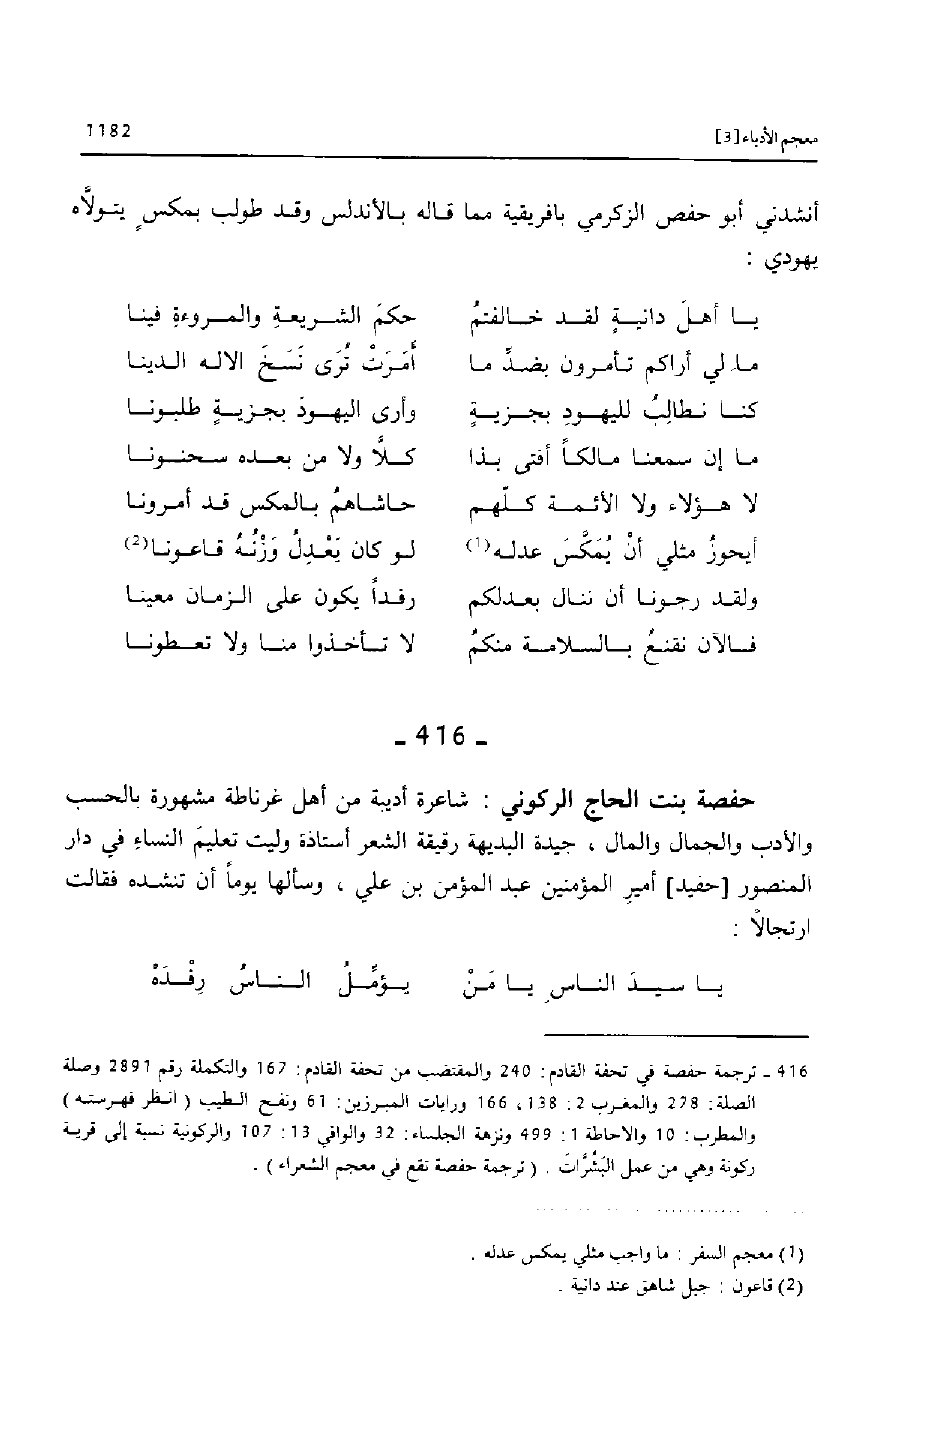 معجم الأدباء [3] 1182
أنشدني أبو حفص الزكرمي بافريقية مما قاله بالأندلس وقد طولب بمكسٍ يتولَّاه
يهودي :
يا أهلَ دانيةٍ لقد خالفتمُ حكمَ الشريعةِ والمروءةِ فينا
ما لي أراكم تأمرون بضدِّ ما أَمَرَتْ تُرَى نَسَخَ الاله الدينا
كنا نطالِبُ لليهودِ بجزيةٍ وأرى اليهودَ بجزيةٍ طلبونا
ما إن سمعنا مالكاً أفتى بذا كلَّا ولا من بعده سحنونا
لا هؤلاء ولا الأئمة كلّهم حاشاهمُ بالمكس قد أمرونا
أيجوزُ مثلي أنْ يُمَكَّسَ عدله(1) لو كان يَعْدِلُ وَزْنُهُ قاعونا(2)
ولقد رجونا أن ننال بعدلكم رفداً يكون على الزمان معينا
فالآن نقنعُ بالسلامة منكمُ لا تأخذوا منا ولا تعطونا
ـ 416 ـ
حفصة بنت الحاج الركوني : شاعرة أديبة من أهل غرناطة مشهورة بالحسب
والأدب والجمال والمال ، جيدة البديهة رقيقة الشعر أستاذة وليت تعليمَ النساءِ في دار
المنصور [حفيد] أميرِ المؤمنين عبد المؤمن بن علي ، وسألها يوماً أن تنشده فقالت
ارتجالاً :
يا سيدَ الناسِ يا مَنْ يؤمِّلُ الناسُ رِفْدَهْ
416 ـ ترجمة حفصة في تحفة القادم: 240 والمقتضب من تحفة القادم: 167 والتكملة رقم 2891 وصلة
الصلة: 278 والمغرب 2: 138 ، 166 ورايات المبرزين: 61 ونفح الطيب ( انظر فهرسته )
والمطرب: 10 والاحاطة 1: 499 ونزهة الجلساء: 32 والوافي 13: 107 والركونية نسبة إلى قرية
ركونة وهي من عمل البَشُرَّات . ( ترجمة حفصة تقع في معجم الشعراء ) .
(1) معجم السفر : ما واجب مثلي يمكس عدله .
(2) قاعون : جبل شاهق عند دانية .